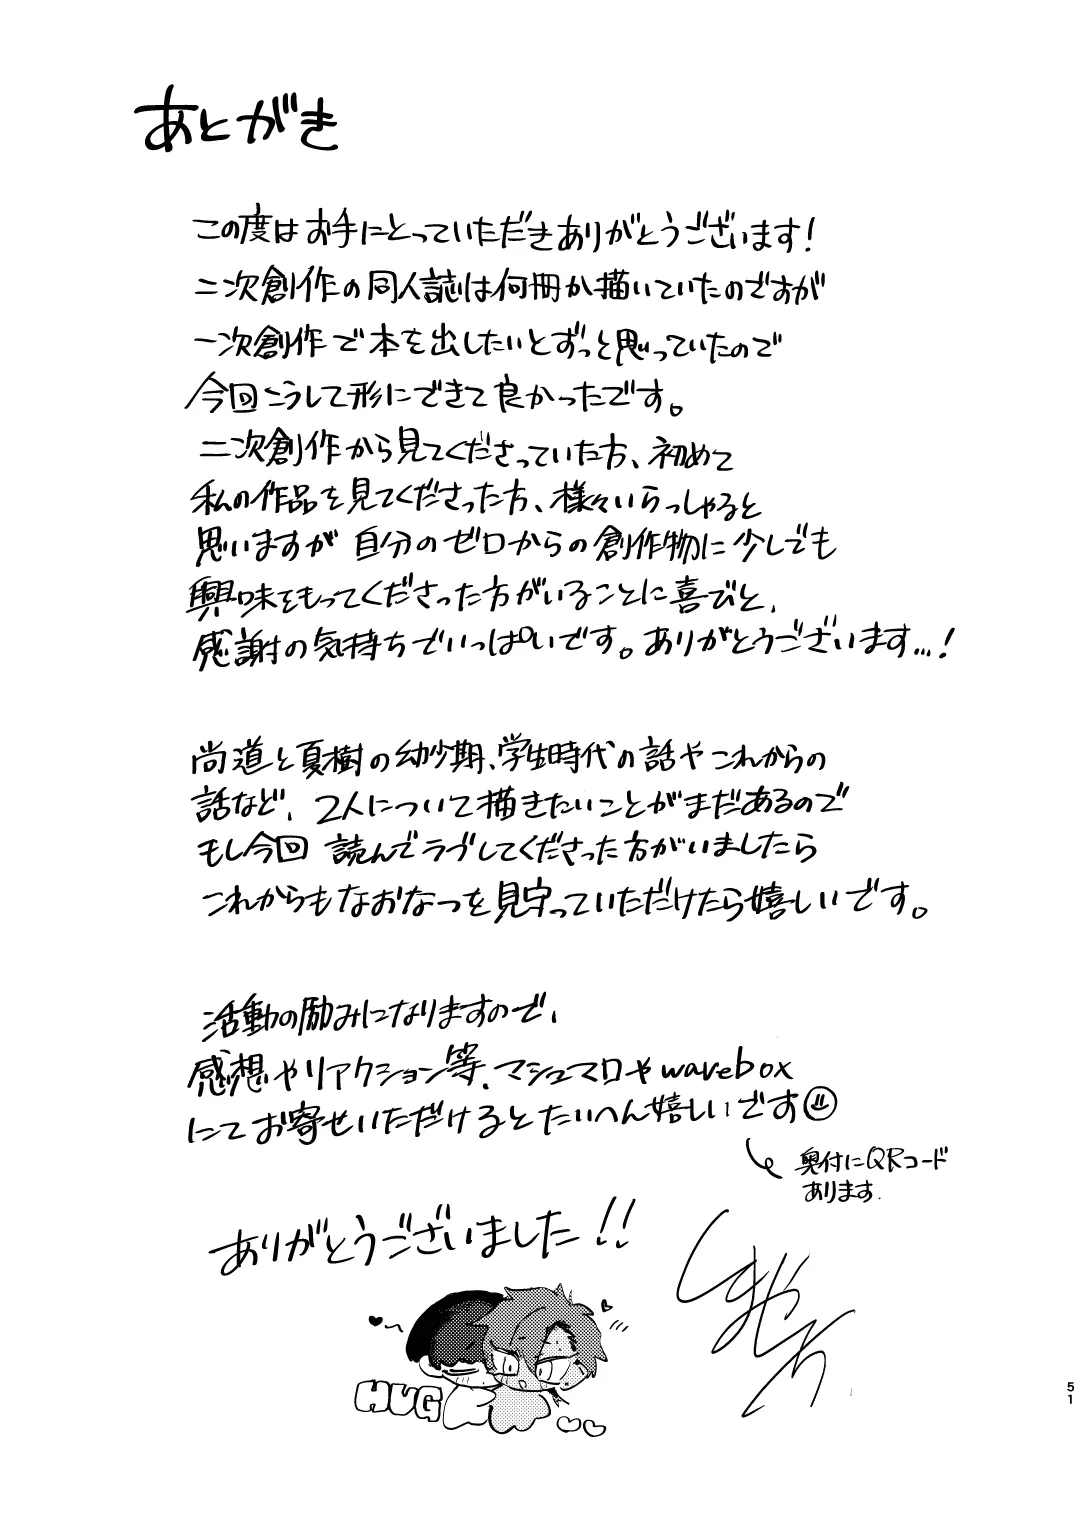 あとがき
この度はお手にとっていただきありがとうございます!
二次創作の同人誌は何冊か描いていたのですが
一次創作で本を出したいとずっと思っていたので
今回こうして形にできて良かったです。
二次創作から見てくださっていた方、初めて
私の作品を見てくださった方、様々いらっしゃると
思いますが 自分のゼロからの創作物に少しでも
興味をもってくださった方がいることに喜びと、
感謝の気持ちでいっぱいです。ありがとうございます...!
尚道と夏樹の幼少期、学生時代の話やこれからの
話など、2人について描きたいことがまだあるので
もし今回 読んでラブしてくださった方がいましたら
これからもなおなつを見守っていただけたら嬉しいです。
活動の励みになりますので、
感想やリアクション等、マシュマロやwavebox
にてお寄せいただけるとたいへん嬉しいです
奥付にQRコード
あります.
ありがとうございました!!
HUG
51